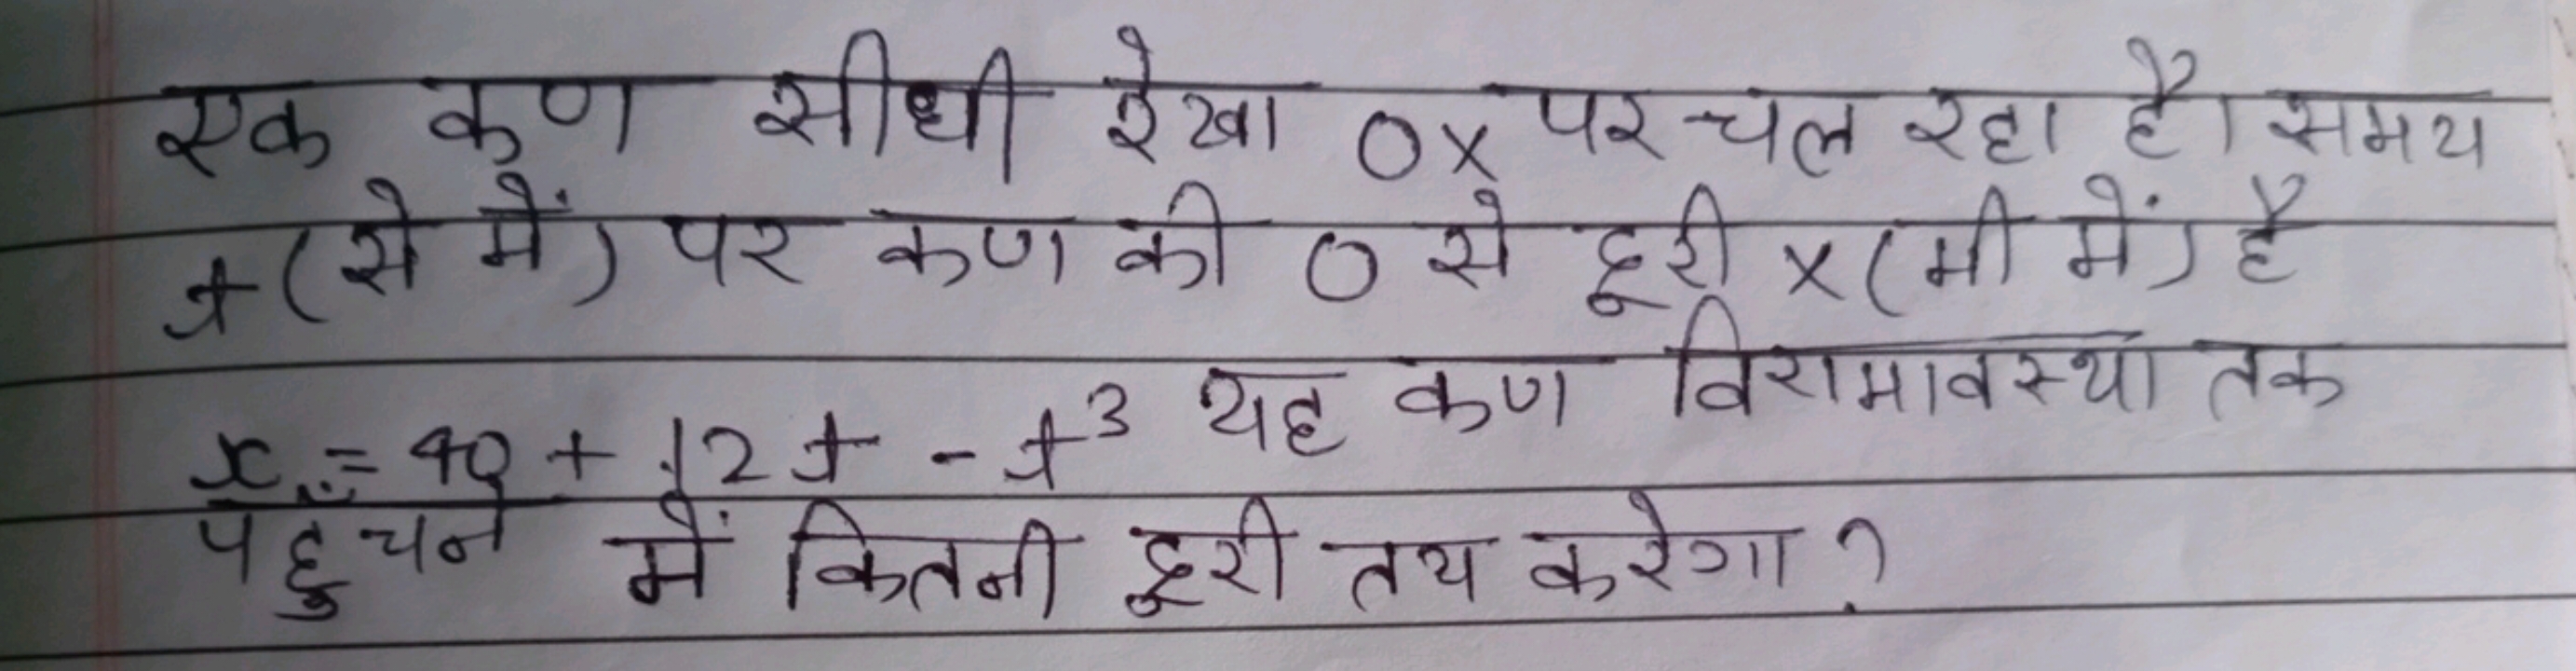 एक कण सीधी रेखा OX पर चल रहा है। समय
t (से में) पर कण की O से दूरी x (मी में) है
x = 40 + 12t - t³ यह कण विरामावस्था तक
पहुंचने में कितनी दूरी तय करेगा ?